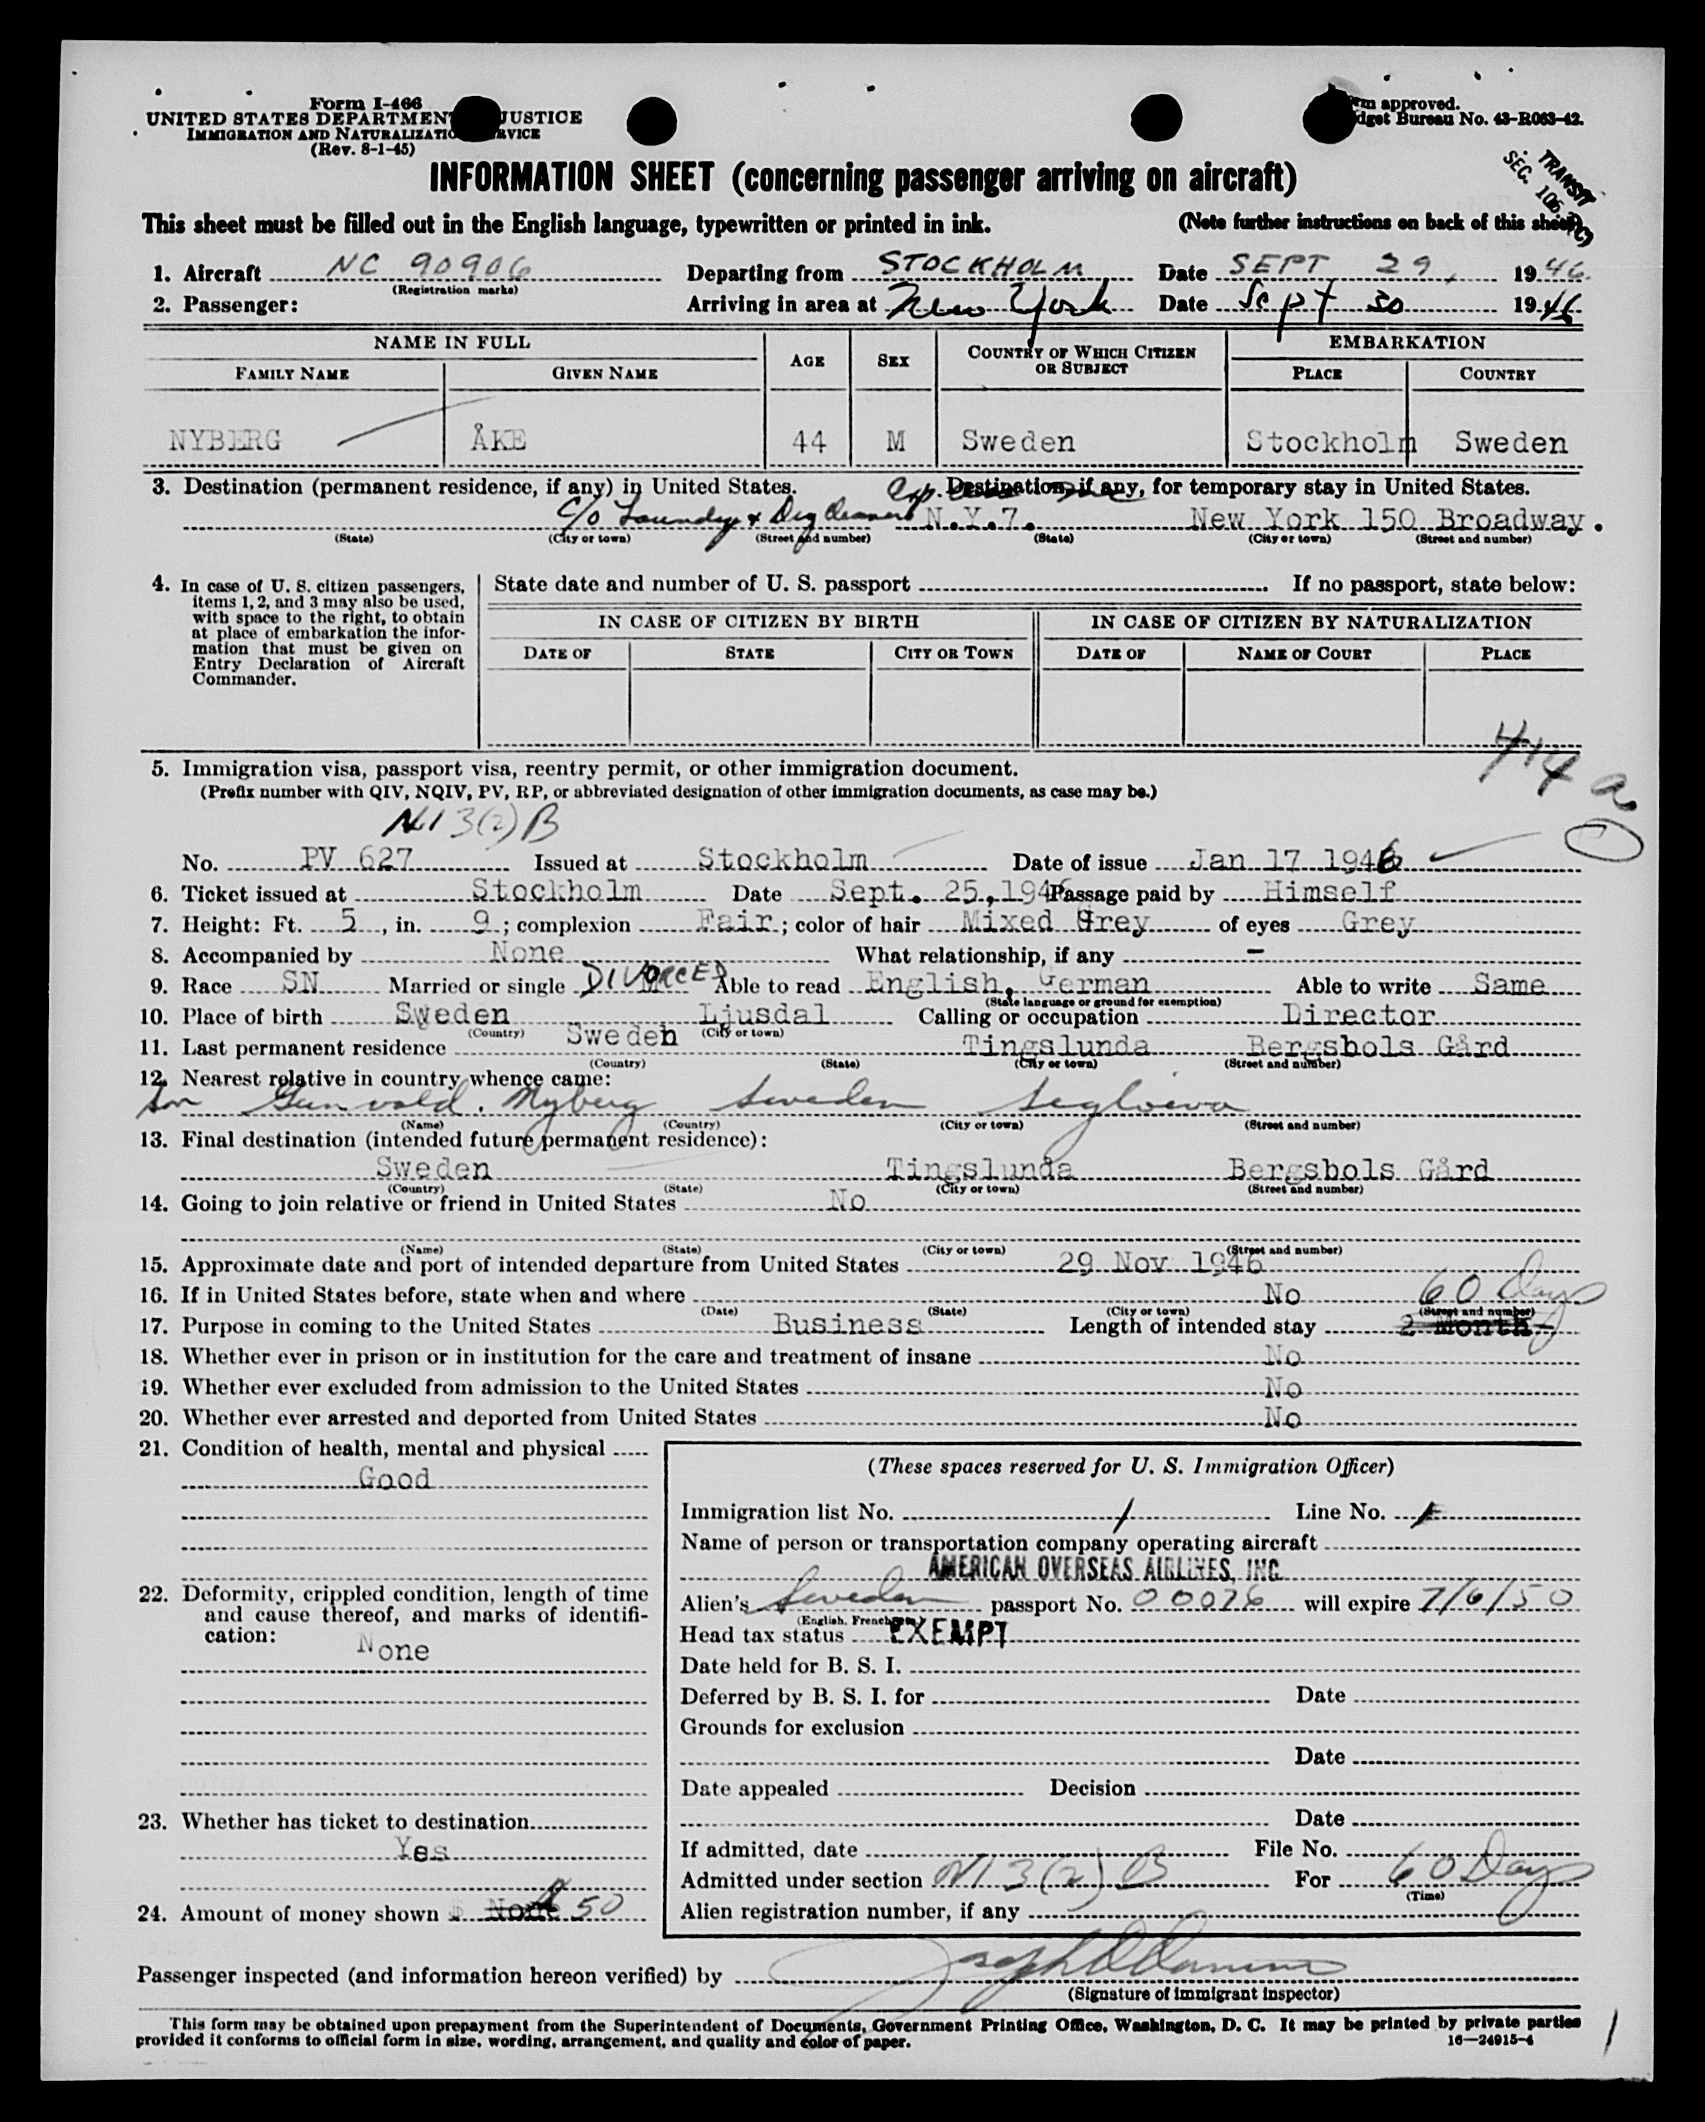 Form I-466
UNITED STATES DEPARTMENT JUSTICE
IMMIGRATION AND NATURALIZATION SERVICE
(Rev. 8-1-45)
Form approved.
Budget Bureau No. 43-R063-42.
TRANSIT
SEC. 105.3(C)
INFORMATION SHEET (concerning passenger arriving on aircraft)
This sheet must be filled out in the English language, typewritten or printed in ink. (Note further instructions on back of this sheet)
1. Aircraft NC 90906 Departing from STOCKHOLM Date SEPT 29, 1946.
(Registration marks)
2. Passenger: Arriving in area at New York Date Sept 30 1946
NAME IN FULL AGE SEX COUNTRY OF WHICH CITIZEN OR SUBJECT EMBARKATION
FAMILY NAME GIVEN NAME PLACE COUNTRY
NYBERG ÅKE 44 M Sweden Stockholm Sweden
3. Destination (permanent residence, if any) in United States. Destination, if any, for temporary stay in United States.
c/o Laundry & Dry Cleaners N.Y.7. New York 150 Broadway.
(State) (City or town) (Street and number) (State) (City or town) (Street and number)
4. In case of U. S. citizen passengers, items 1, 2, and 3 may also be used, with space to the right, to obtain at place of embarkation the information that must be given on Entry Declaration of Aircraft Commander.
State date and number of U. S. passport If no passport, state below:
IN CASE OF CITIZEN BY BIRTH IN CASE OF CITIZEN BY NATURALIZATION
DATE OF STATE CITY OR TOWN DATE OF NAME OF COURT PLACE
414 a
5. Immigration visa, passport visa, reentry permit, or other immigration document.
(Prefix number with QIV, NQIV, PV, RP, or abbreviated designation of other immigration documents, as case may be.)
NI 3(2) B
No. PV 627 Issued at Stockholm Date of issue Jan 17 1946
6. Ticket issued at Stockholm Date Sept. 25,1946 Passage paid by Himself
7. Height: Ft. 5, in. 9; complexion Fair; color of hair Mixed Grey of eyes Grey
8. Accompanied by None What relationship, if any -
9. Race SN Married or single DIVORCED Able to read English, German Able to write Same
(State language or ground for exemption)
10. Place of birth Sweden Ljusdal Calling or occupation Director
(Country) (City or town)
11. Last permanent residence Sweden Tingslunda Bergsbols Gård
(Country) (State) (City or town) (Street and number)
12. Nearest relative in country whence came:
Son Gunvald. Nyberg Sweden
(Name) (Country) (City or town) (Street and number)
13. Final destination (intended future permanent residence):
Sweden Tingslunda Bergsbols Gård
(Country) (State) (City or town) (Street and number)
14. Going to join relative or friend in United States No
(Name) (State) (City or town) (Street and number)
15. Approximate date and port of intended departure from United States 29 Nov 1946
16. If in United States before, state when and where No 60 Days
(Date) (State) (City or town) (Street and number)
17. Purpose in coming to the United States Business Length of intended stay 2 Month
18. Whether ever in prison or in institution for the care and treatment of insane No
19. Whether ever excluded from admission to the United States No
20. Whether ever arrested and deported from United States No
21. Condition of health, mental and physical
Good
22. Deformity, crippled condition, length of time and cause thereof, and marks of identification:
None
23. Whether has ticket to destination
Yes
24. Amount of money shown $ None 50
(These spaces reserved for U. S. Immigration Officer)
Immigration list No. 1 Line No. 1
Name of person or transportation company operating aircraft
AMERICAN OVERSEAS AIRLINES, INC.
Alien's Sweden passport No. 00076 will expire 7/6/50
(English, French, etc.)
Head tax status EXEMPT
Date held for B. S. I.
Deferred by B. S. I. for Date
Grounds for exclusion
Date
Date appealed Decision
Date
If admitted, date File No.
Admitted under section NI 3(2) B For 60 Days
(Time)
Alien registration number, if any
Passenger inspected (and information hereon verified) by
(Signature of immigrant inspector)
This form may be obtained upon prepayment from the Superintendent of Documents, Government Printing Office, Washington, D. C. It may be printed by private parties
provided it conforms to official form in size, wording, arrangement, and quality and color of paper. 16—24915-4
1